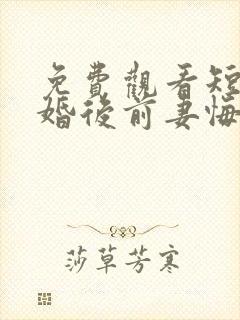 免費觀看短
婚後前妻悔
莎草芳寒